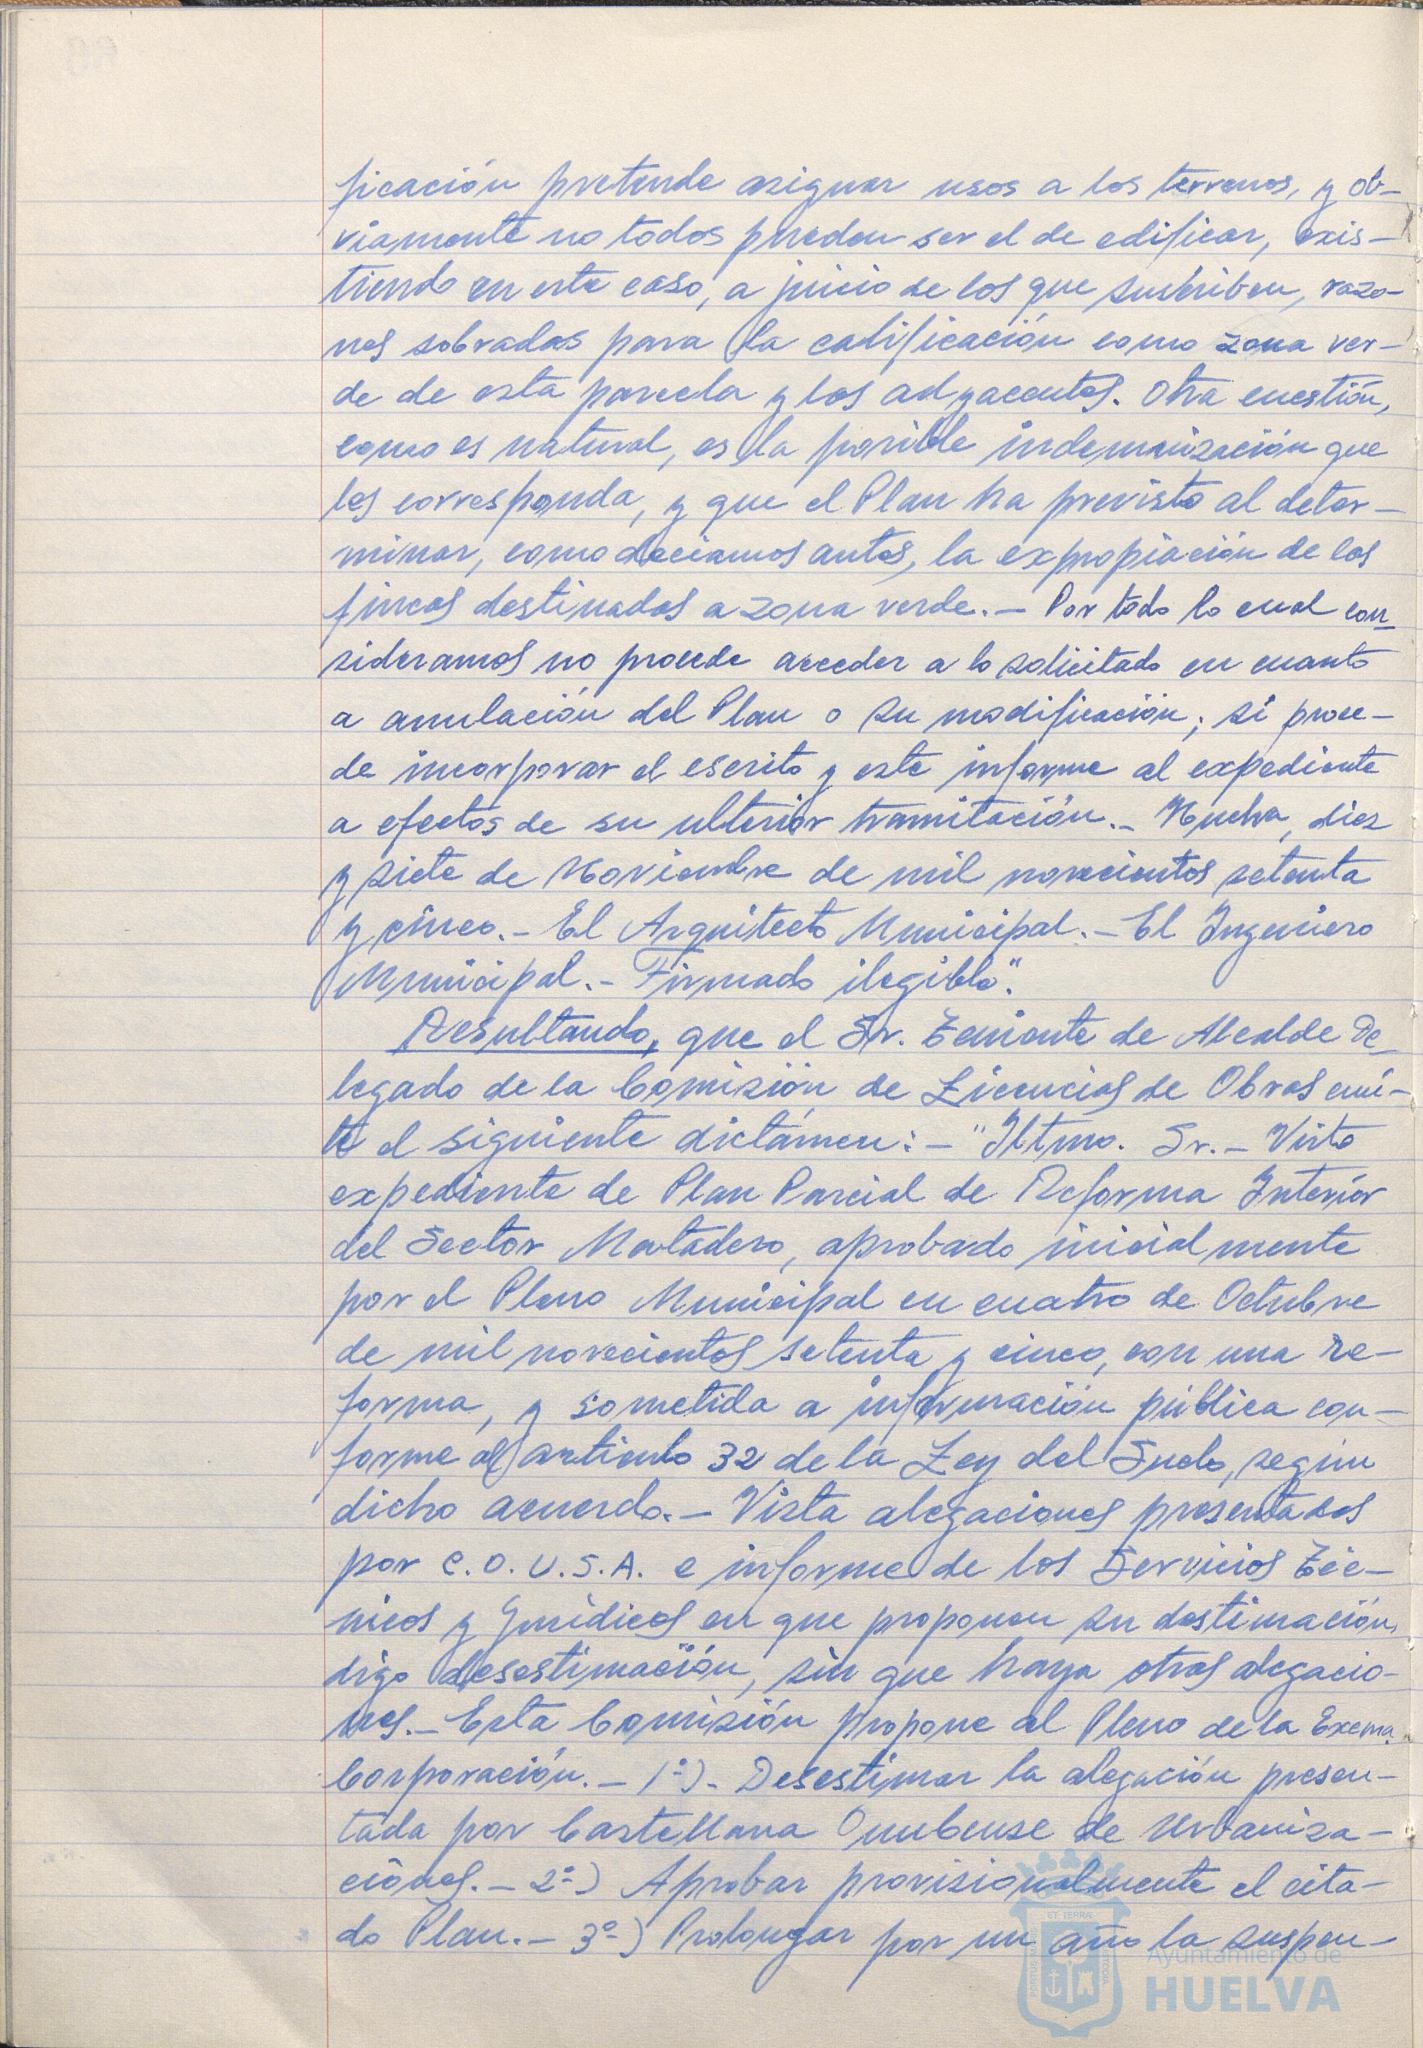 ficación pretende asignar usos a los terrenos, y ob-
viamente no todos pueden ser el de edificar, exis-
tiendo en este caso, a juicio de los que suscriben, razo-
nes sobradas para la calificación como zona ver-
de de esta parcela y las adyacentes. Otra cuestión,
como es natural, es la posible indemnización que
les corresponda, y que el Plan ha previsto al deter-
minar, como deciamos antes, la expropiación de las
fincas destinadas a zona verde.- Por todo lo cual con-
sideramos no procede acceder a lo solicitado en cuanto
a anulación del Plan o su modificación; si proce-
de incorporar el escrito y este informe al expediente
a efectos de su ulterior tramitación.- Huelva, diez
y siete de Noviembre de mil novecientos setenta
y cinco.- El Arquitecto Municipal.- El Ingeniero
Municipal.- Firmado ilegible".
Resultando, que el Sr. Teniente de Alcalde De-
legado de la Comisión de Licencias de Obras emi-
te el siguiente dictámen:- "Iltmo. Sr.- Visto
expediente de Plan Parcial de Reforma Interior
del Sector Matadero, aprobado inicialmente
por el Pleno Municipal en cuatro de Octubre
de mil novecientos setenta y cinco, con una re-
forma, y sometida a información pública con-
forme al artículo 32 de la Ley del Suelo, según
dicho acuerdo.- Vista alegaciones presentadas
por C.O.U.S.A. e informe de los Servicios Téc-
nicos y Jurídicos en que proponen su destimación,
digo desestimación, sin que haya otras alegacio-
nes.- Esta Comisión propone al Pleno de la Excma.
Corporación.- 1º).- Desestimar la alegación presen-
tada por Castellana Onubense de Urbaniza-
ciones.- 2º) Aprobar provisionalmente el cita-
do Plan.- 3º) Prolongar por un año la suspen-
Ayuntamiento de
HUELVA